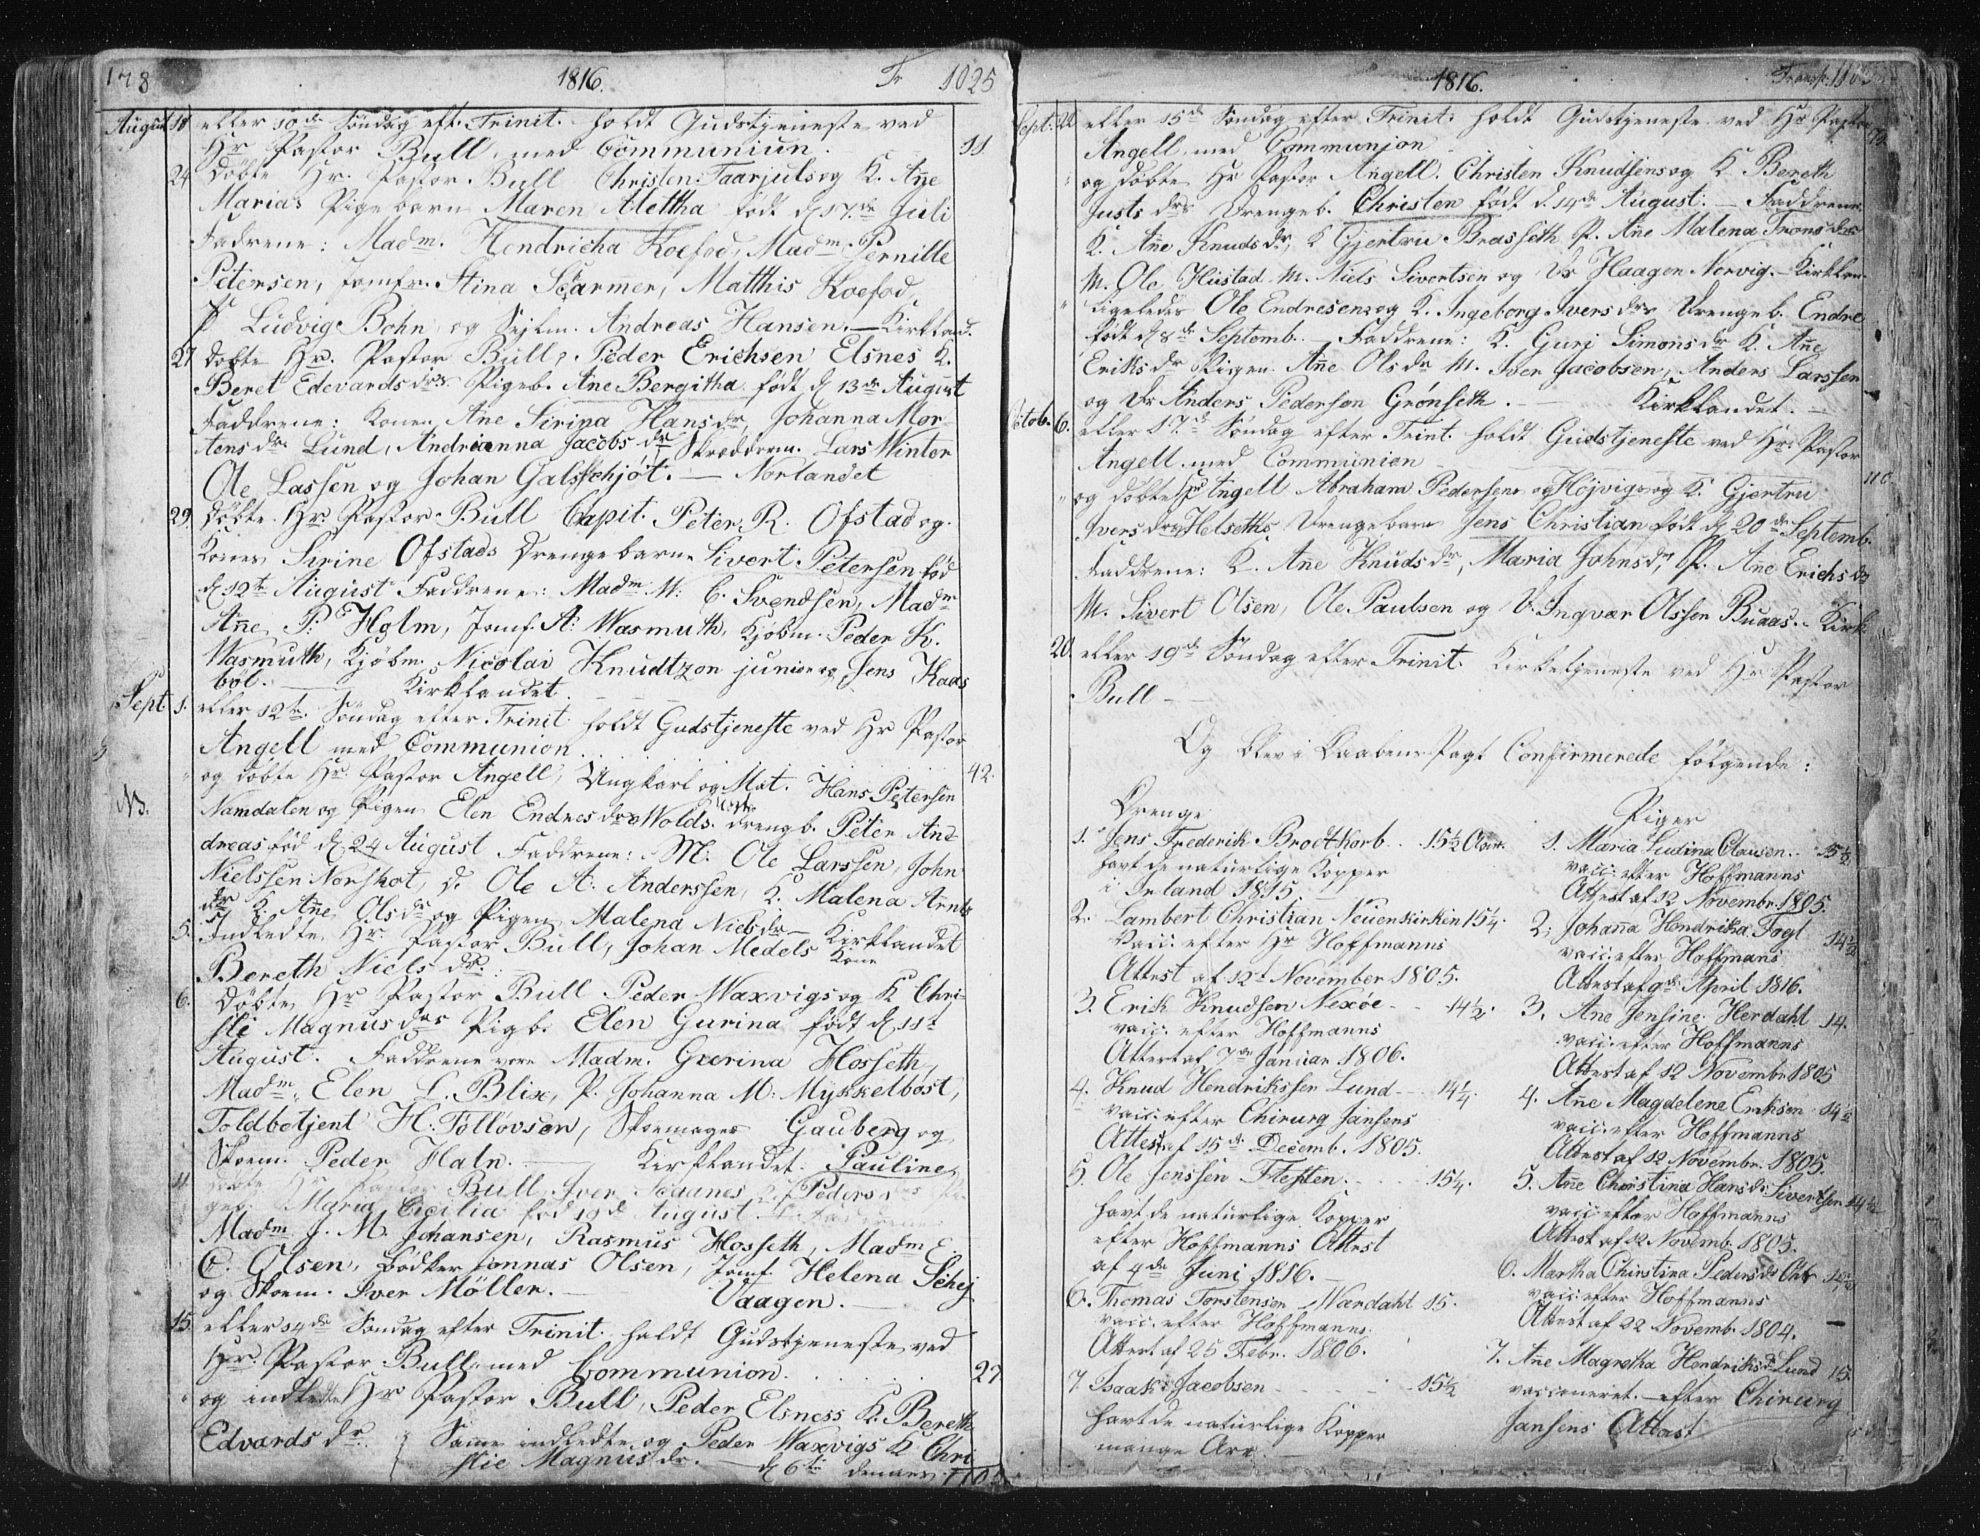 178
1816.
Tr 1025
August 18 eller 10de Søndag eft. Trinit. holdt Gudstjeneste ved
Hr Pastor Bull, med Communiun. 11
24 Døbte Hr. Pastor Bull Christen Taarjuls og K. Ane
Marias Pigebarn Maren Alettha født d 17de Juli
Fadrene: Madm. Hendricha Koefod, Madm Pernille
Petersen, Jomfr. Stina Scharmer, Matthis Koefod,
P Ludvig Bohn og Sejlm. Andreas Hansen. — Kirkland.
27 Døbte Hr. Pastor Bull, Peder Erichsen Elsnes K.
Beret Edevardsdrs Pigeb. Ane Bergitha født d 13de August
Faddrene: Konen Ane Sirina Hansdr, Johanna Mor
tensdr Lund, Andrianna Jacobsdr, Skræderm. Lars Winter
Ole Lassen og Johan Galsschjøt. — Norlandet
29 Døbte Hr. Pastor Bull Capit. Peter R. Ofstad og
Konen Sirine Ofstads Drengebarn Sivert Petersen fød
d 12te August Faddrene: Madm M: C. Svendsen, Madm
Ane P: Holm, Jomf. A: Wasmuth, Kjøbm. Peder H.
Wasmuth, Kjøbm. Nicolai Knudtzon junior og Jens Kads
bøl. — Kirklandet.
Sept 1. eller 12te Søndag efter Trinit. holdt Gudstjeneste ved Hr Pastor
Angell med Communion. 42.
" og døbte Hr. Pastor Angell, Ungkarl og Mat. Hans Petersen
NB. Namdalen og Pigen Elen Endresdr Wolds uægte drengb. Peter And
dreas fød d. 24 August Faddrene: M. Ole Larssen, John
Nielssen Norskot, D. Ole A: Anderssen, K. Malena Arnts
dr K Ane Olsdr og Pigen Malena Nielsdr — Kirklandet
5. Indledte Hr. Pastor Bull, Johan Medels Kone
Bereth Nielsdr.
6. Døbte Hr Pastor Bull Peder Waxvigs og K Chri-
stie Magnusdrs Pigb. Elen Gurina født d 11te
August. Faddrene vare Madm. Gurina Hosseth,
Madm. Elen L. Blix, P. Johanna M. Mykkelbost,
Toldbetjent H. Tølløvsen, Skomager Gauberg og
Skoem. Peder Haln. — Kirklandet. Pauline
11 Døbte Hr Pastor Bull Iver Pedersdrs
geb: Maria Cicilia fød 19de August Faddrene
Madm J. M. Johansen, Rasmus Hosseth, Madm E
C. Olsen, Bødker Jonnas Olsen, Jomf. Helena Schej
og Skoem. Iver Møller. — Vaagen.
15. eller 14de Søndag efter Trinit. holdt Gudstjeneste ved
Hr. Pastor Bull, med Communion. 27
" og indledte Hr Pastor Bull, Peder Elsness K. Bereth
Edvardsdr. Samme indledte og Peder Waxvigs K Chri
stie Magnusdr. — d 6te dennes.
1816.
Transp.
Sept. 22 eller 15de Søndag efter Trinit. holdt Gudstjeneste ved Hr Pastor
Angell med Communion
" og døbte Hr Pastor Angell Christen Knudsens og K Bereth
Justsdrs Drengeb. Christen født d. 14de August. — Faddrene
K. Ane Knudsdr, K Gjertru Brasseth P. Ane Malena Tronsdr
M. Ole Hustad M. Niels Sivertsen og Dr Haagen Nervig. Kirklan.
" Ligeledes Ole Endresens og K. Ingeborg Iversdrs Drengeb. Endre
født d 8de Septemb. Faddrene: K. Guri Simonsdr K. Ane
Eriksdr Pigen Ane Olsdr M. Iver Jacobsen, Anders Larssen
og Dr Anders Pedersen Grønseth. — Kirklandet. —
Octob. 6. eller 17de Søndag efter Trint. holdt Gudstjeneste ved Hr. Pastor
Angell med Communion 110
" og døbte Hr P Angell Abraham Pedersens Højvigs og K. Gjertru
Iversdrs Helseths Drengebarn Jens Christian født d 20de Septemb.
Faddrene: K. Ane Knudsdr, Maria Johnsdr, P. Ane Erichsdr
M. Sivert Olsen, Ole Paulsen og U. Ingvar Olssen Buaas. — Kirk
20. eller 19de Søndag efter Trinit. Kirketjeneste ved Hr Pastor
Bull —
Og blev i Daabens Pagt Confirmerede følgende:
Drenge
1. Jens Frederik Brodtkorb. 15½ Aar.
havt de naturlige Kopper
i Inland 1815.
2. Lambert Christian Neuenkirken 15¼.
Vacc. efter Hr Hoffmanns
Attest af 12t November 1805.
3. Erik Knudsen Nexøe — 14½.
vacc. efter Hoffmanns
Attest af 7de Januar 1806.
4. Knud Hendrikssen Lund — 14¼.
vacc. efter Chirurg Jansens
Attest af 15de Decemb. 1805.
5. Ole Jenssen Flesten. 15¼.
havt de naturlige Kopper
efter Hoffmanns Attest
af 4de Juni 1816. —
6. Thomas Torstensen Wærdahl 15.
vacc. efter Hoffmanns
Attest af 25 Febr. 1806.
7. Isaak Jacobsen 15½
havt de naturlige Kopper
mange Aar
Piger
1. Maria Ludina Clausen. 15½
vacc. efter Hoffmanns
Attest af 12 Novembr. 1805.
2. Johana Hendrika Fogl 14½
vacc. efter Hoffmans
Attest af 9de April 1816.
3. Ane Jensine Herdahl 14.
vacc. efter Hoffmanns
Attest af 12 Novembr 1805
4. Ane Magdelene Eriksen 14½
vacc. efter Hoffmanns
Attest af 12 Novembr. 1805.
5. Ane Christina Hansdr Sivertsen 14½
vacc. efter Hoffmanns
Attest af 12 Novemb. 1805.
6. Martha Christina Pedersdr
vacc. efter Hoffmanns
Attest af 22 Novemb. 1804.
7. Ane Magretha Hendriksdr Lund 15.
vaccineret efter Chirurg
Jansens Attest